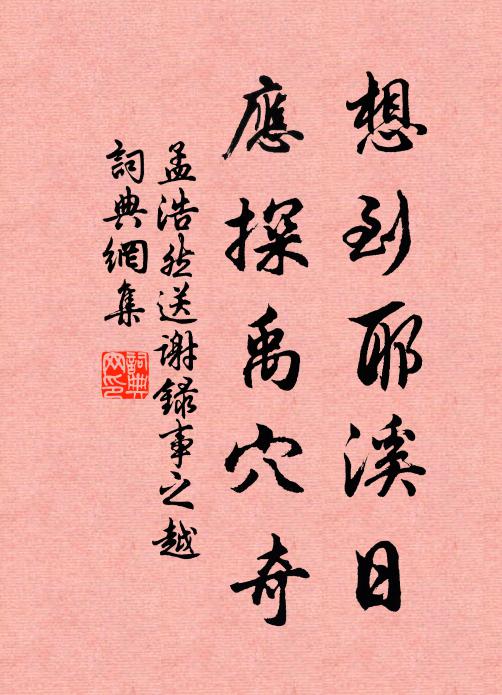 想到耶溪日
應探禹穴奇
孟浩然送謝錄事之越
詞典網集
詞典网印